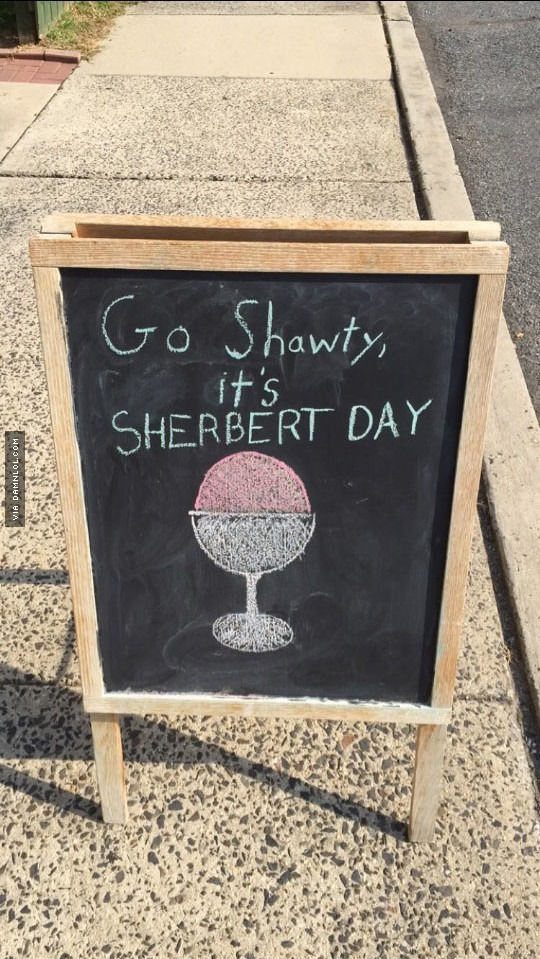 Go Shawty,
it's
SHERBERT DAY
VIA DAMNLOL.COM